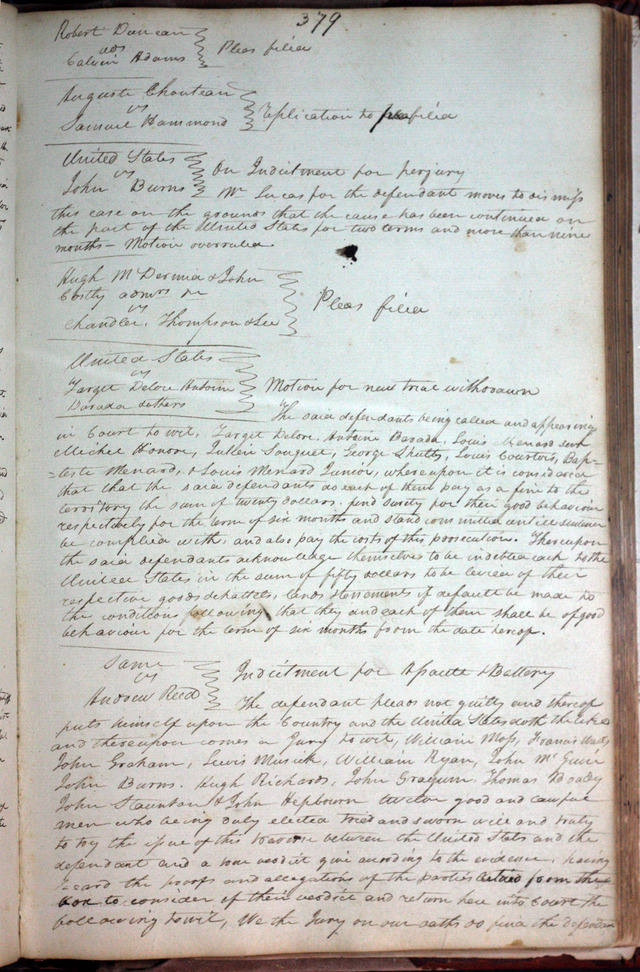 379
Robert Duncan
vs
Calvin Adams
Pleas filed
Auguste Chouteau
vs
Samuel Hammond
Application to filed
United States
vs
John Burns
On Indictment for perjury
Mr Lucas for the defendant moves to dismiss
this case on the grounds that the cause has been continued on
the part of the United States for two terms and more than nine
months - Motion overruled
Hugh M Dermid & John
Costly admrs
vs
Chandler, Thompson & Lee
Pleas filed
United States
vs
Target Delore Antoine
Barada & others
Motion for new trial withdrawn
The said defendants being called and appearing
in Court to wit, Target Delore, Antoine Barada, Louis Menard
Michel Honore, Julien Souquet, George Sheetts, Louis Courtois, Bap-
=tiste Menard, & Louis Menard Junior, whereupon it is considered
that that the said defendants do each of them pay as a fine to the
territory the sum of twenty dollars. find surety for their good behaviour
respectively for the term of six months and stand committed until sentence
be complied with, and also pay the costs of this prosecution. Thereupon
the said defendants acknowledge themselves to be indebted each to the
United States in the sum of fifty dollars to be levied of their
respective goods & chattels, lands & tenements if default be made to
the conditions following, that they and each of them shall be of good
behaviour for the term of six months from the date hereof.
Same
vs
Andrew Reed
Indictment for Assault & Battery
The defendant pleads not guilty and thereof
puts himself upon the Country and the United States doth the like
and thereupon comes a Jury to wit, William Moss, Francis
John Graham, Lewis Musick, William Ryan, John McGuire
John Burns, Hugh Richards, John Gragum Thomas
John Staunton & John Hepbourn twelve good and lawful
men who being duly elected tried and sworn well and truly
to try the issue of this traverse between the United States and the
defendant and a true verdict give according to the evidence, having
heard the proofs and allegations of the parties retired from the
bar to consider of their verdict and return here into Court the
following to wit, We the Jury on our oaths do find the defendant